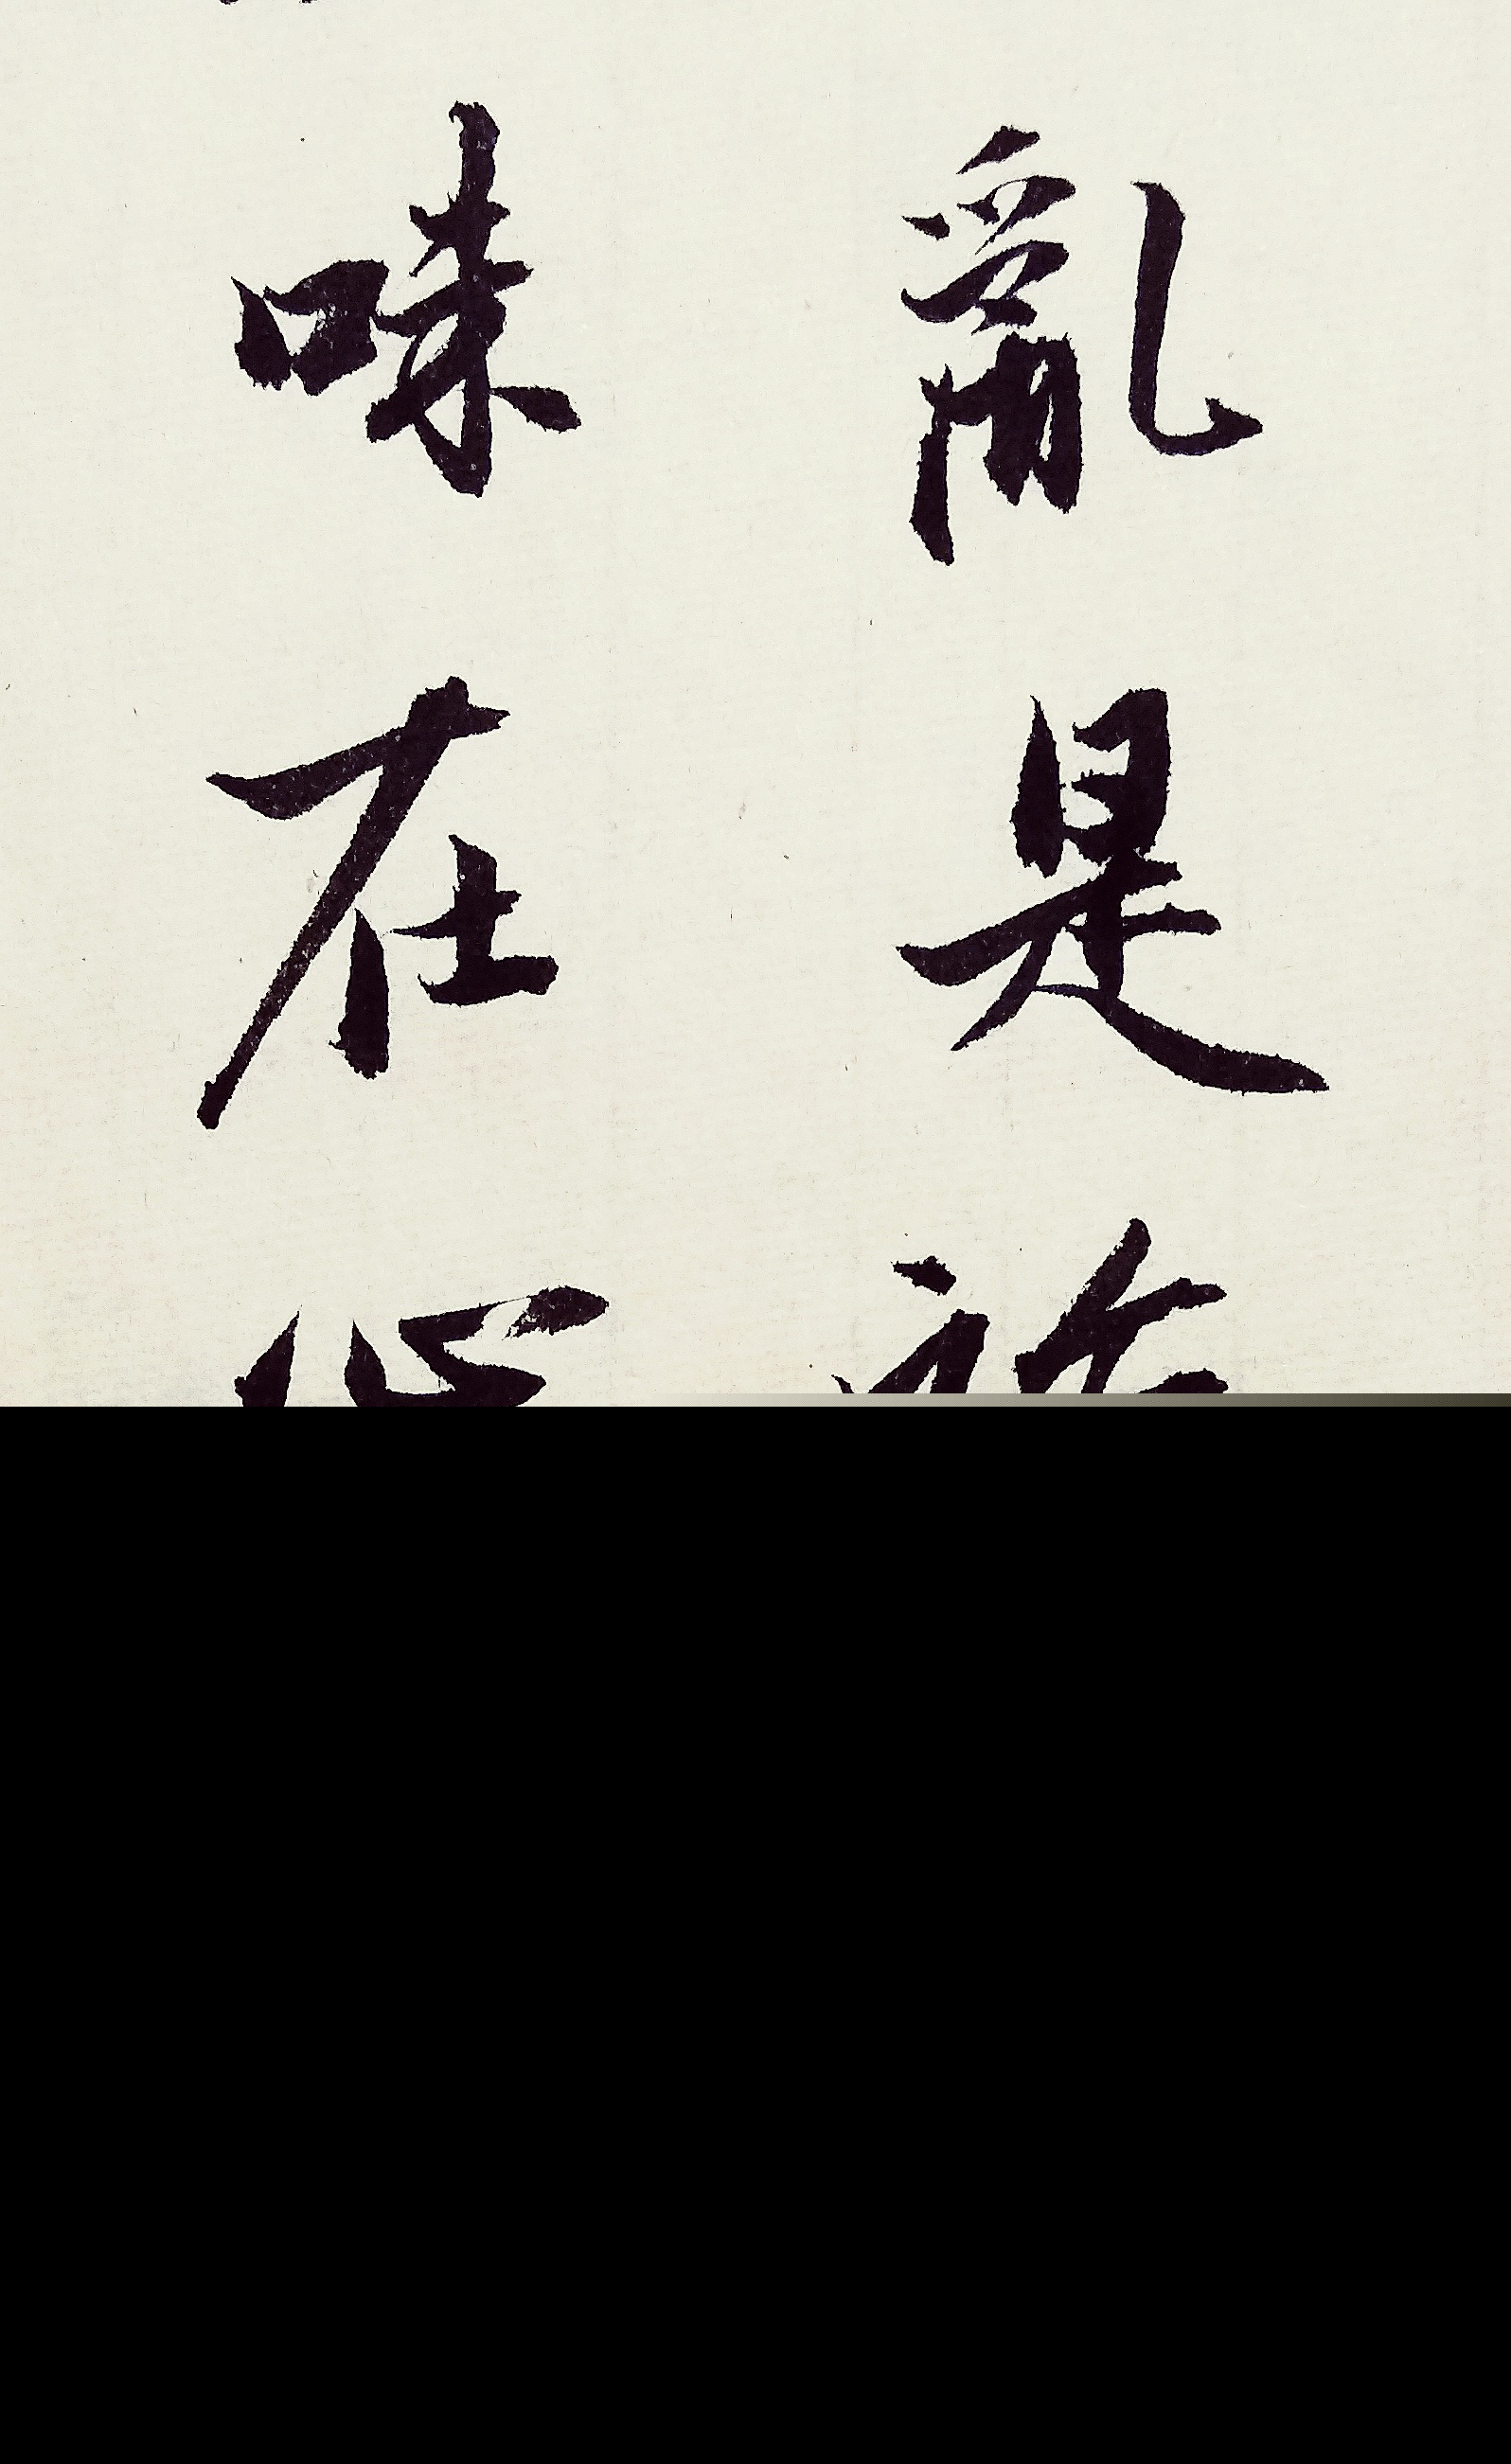 亂是
味在心